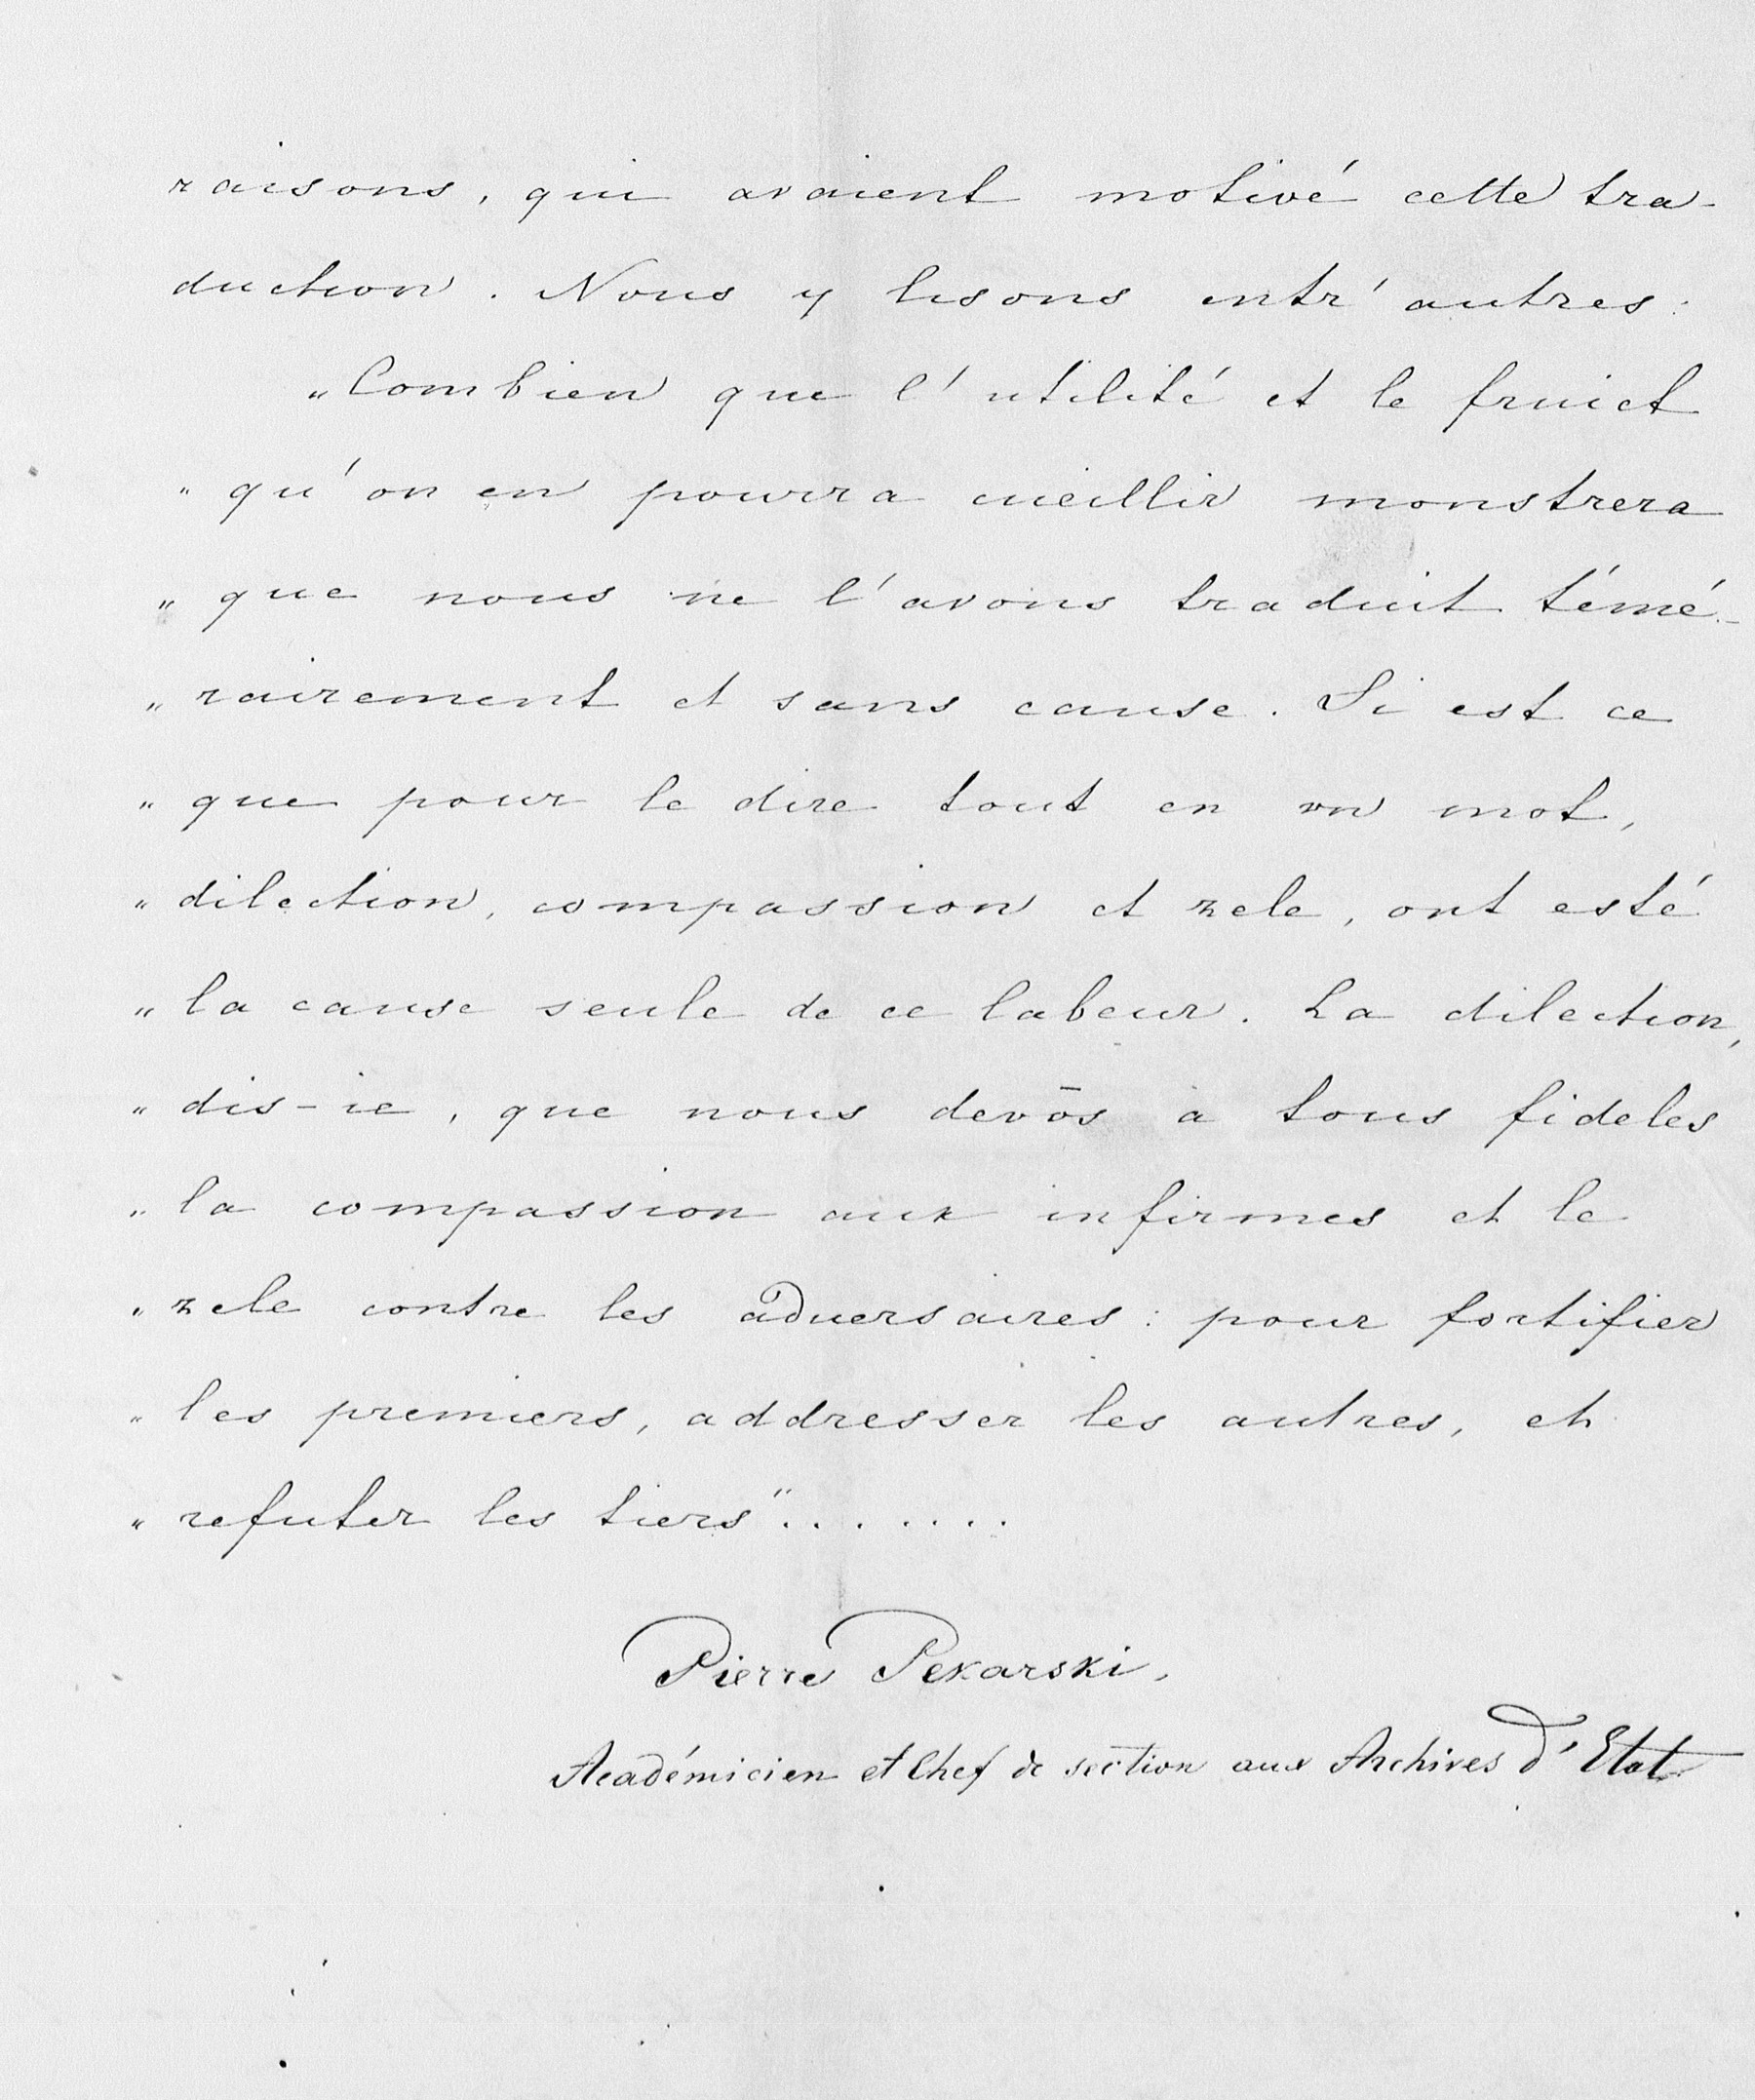 raisons, qui avaient motivé cette tra-
duction. Nous y lisons entr'autres:
„Combien que l'utilité et le fruict
„ qu'on en pourra cueillir monstrera
„ que nous ne l'avons traduit témé-
„ rairement et sans cause. Si est ce
„ que pour le dire tout en vn mot,
„ dilection, compassion et zele, ont esté
„ la cause seule de ce labeur. La dilection,
„ dis-ie, que nous devōs à tous fideles
„ la compassion aux infirmes et le
„ zele contre les aduersaires: pour fortifier
„ les premiers, addresser les autres, et
„ refuter les tiers".......
Pierre Pekarski,
Académicien et Chef de section aux Archives d'Etat